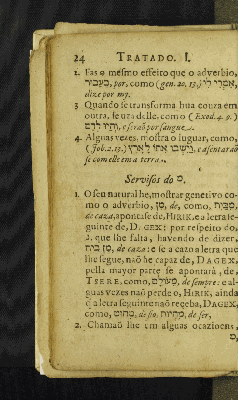 24 TRATADO. I.
2. Fas o mesmo effeito que o adverbio,
בעבור, por, como (gen. 20, 13,) אמרי לי,
dize por my.
3 Quando se transforma hua couza em
outra, se uza delle, como (Exod. 4. 9.)
והיו לדם, e seraõ por sangue.
4. Alguas vezes, mostra o lugar, como,
(Job. 2. 13.) וישבו אתו לארץ, e asentaraõ
se com elle em a terra.
Servisos do מ.
1. O seu natural he, mostrar genetivo co-
mo o adverbio, מן, de, como, מבית,
de caza, aponta se de, HIRIK, e a letra se-
guinte de, DAGEX: por respeito do,
נ, que lhe falta, havendo de dizer,
מן בית, de caza: e se a cazo a letra que
lhe segue, naõ he capaz de, DAGEX,
pella mayor parte se apontarà, de,
TSERE, como, מעולם, de sempre: e al-
guas vezes naõ perde o, HIRIK, ainda
q̃ a letra seguinte naõ receba, DAGEX,
como, מחוט, de fio, מהיות, de ser.
2. Chamaõ lhe em alguas ocazioens,